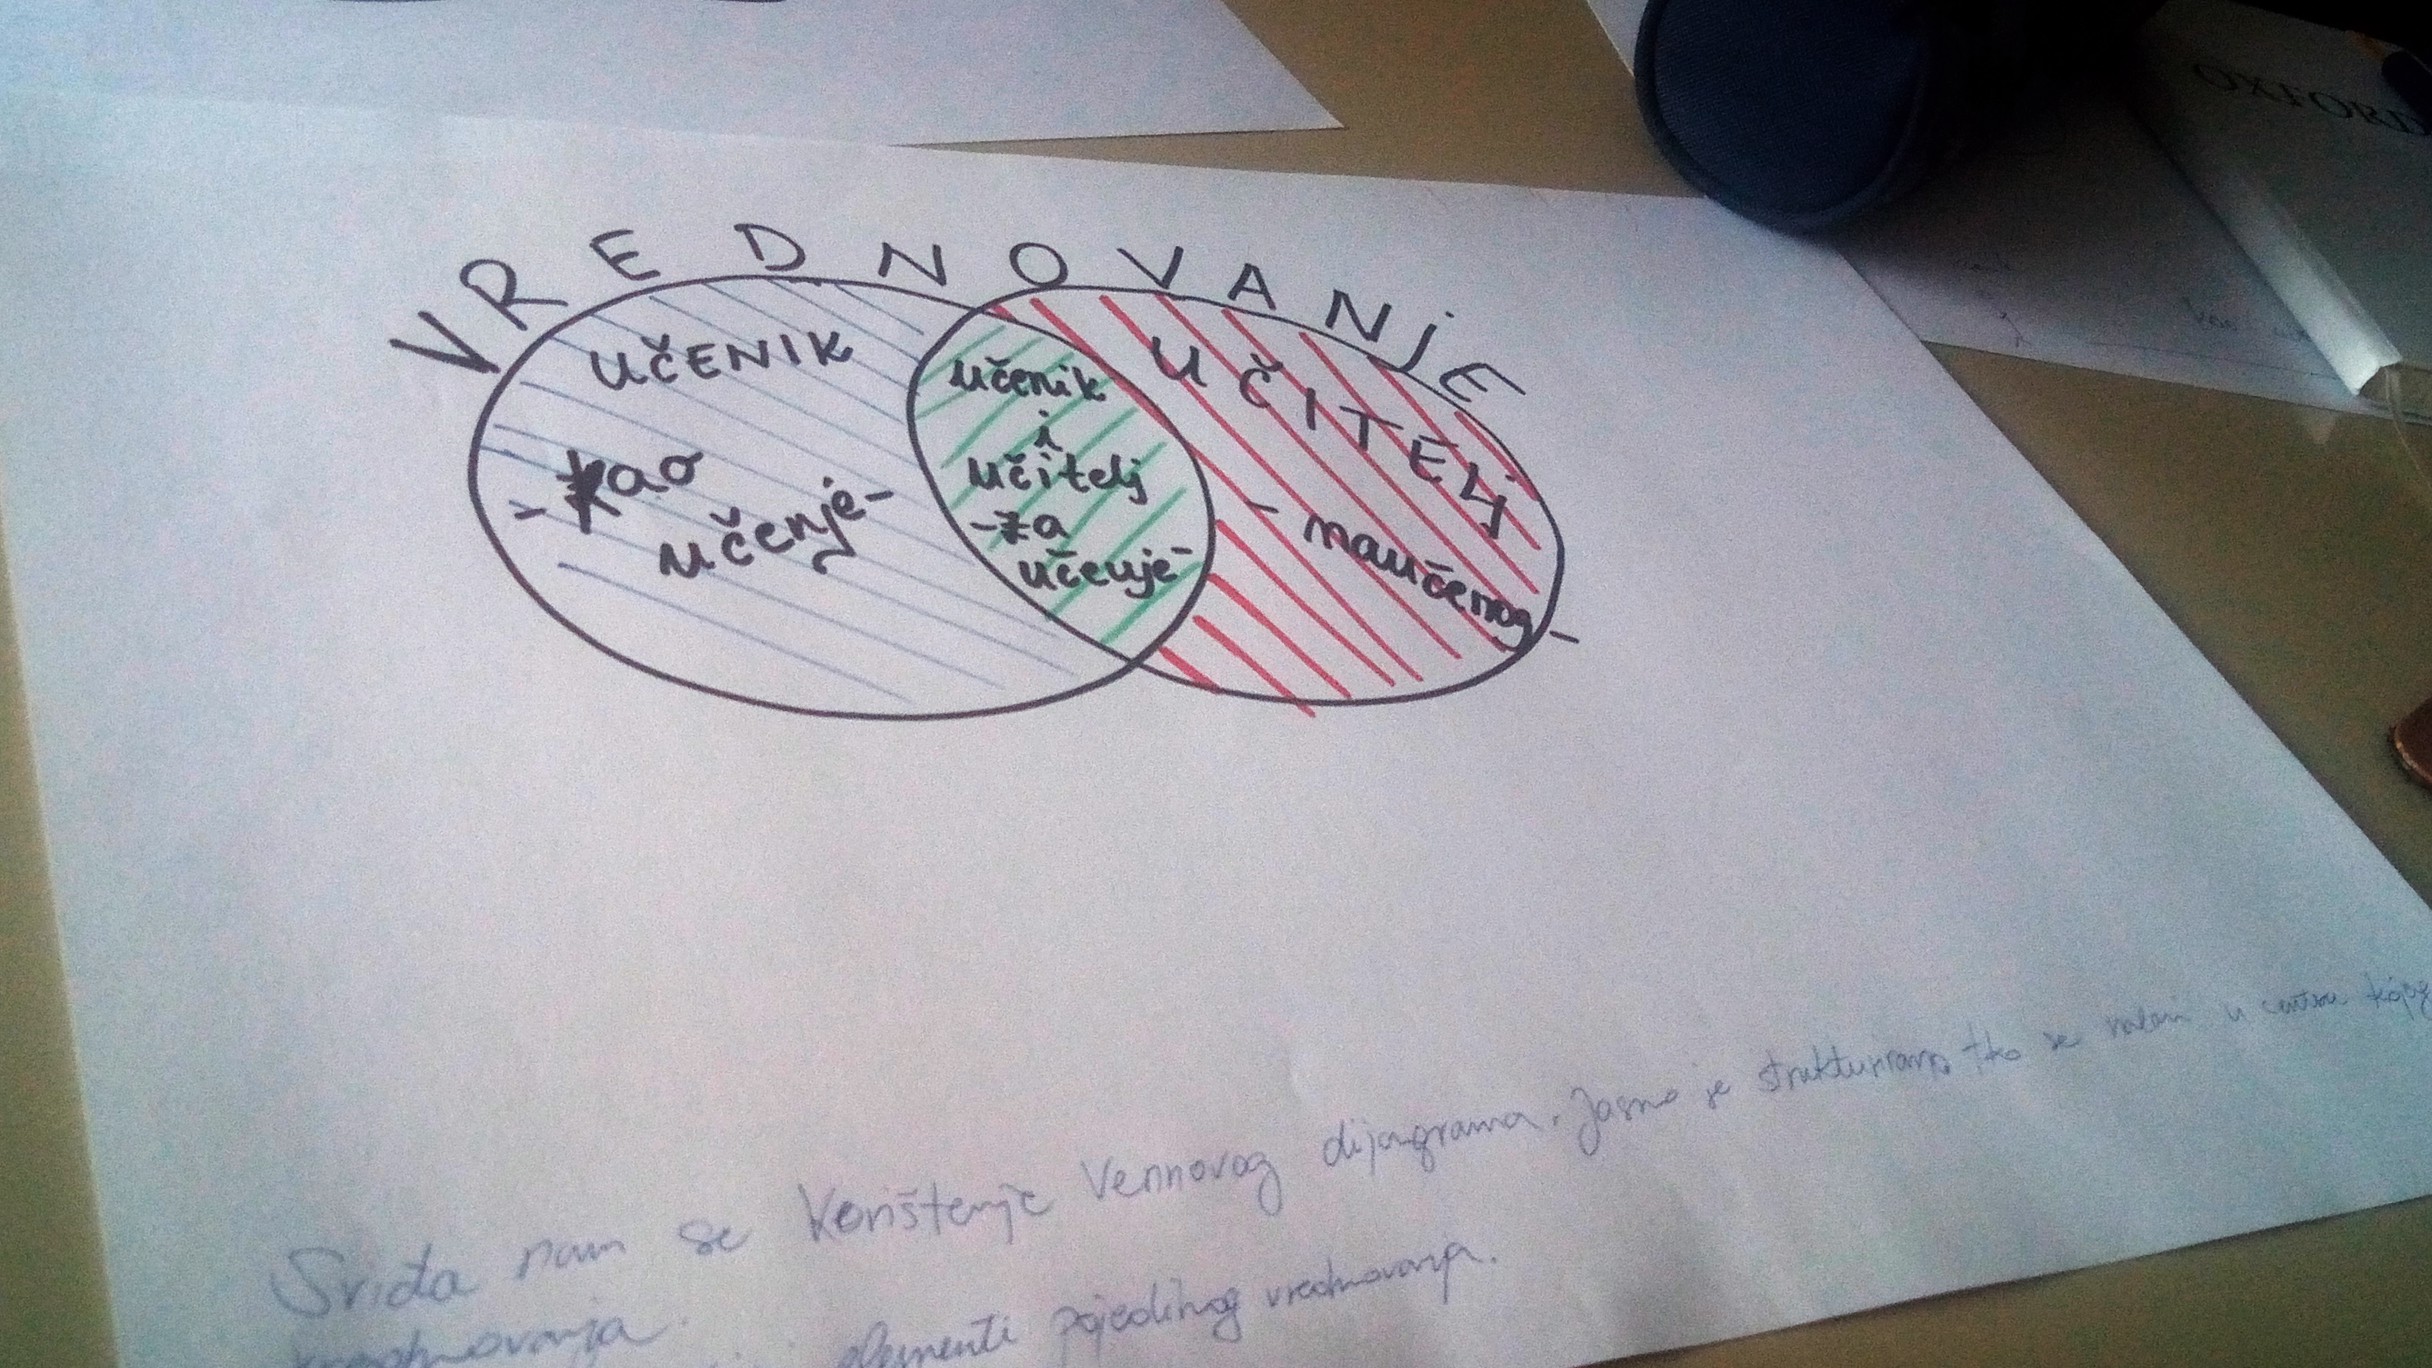 VREDNOVANJE
UČENIK
- kao
učenje -
učenik
i
učitelj
- za
učenje -
UČITELJ
- naučenog -
Sviđa nam se korištenje Vennovog dijagrama. Jasno je strukturirano tko se nalazi u centru kojeg
vrednovanja.
elementi pojedinog vrednovanja.
OXFORD